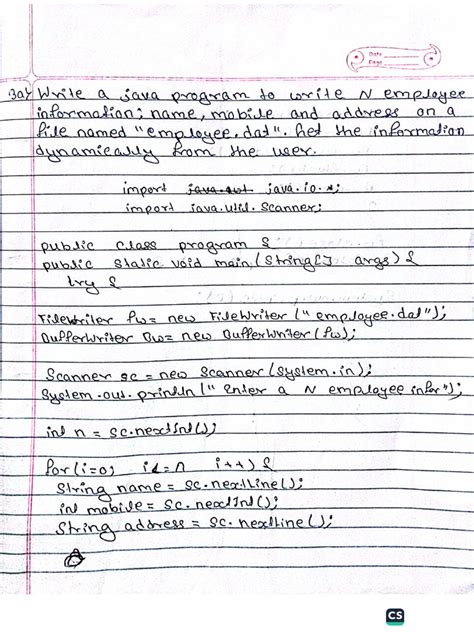 Date
Page
3a) Write a java program to write N employee
information; name, mobile and address on a
file named "employee.dat". Get the information
dynamically from the user.
import java.awt java.io.*;
import java.util.Scanner;
public class program {
public static void main(String[] args) {
try {
FileWriter fw = new FileWriter("employee.dat");
BufferWriter Bw = new BufferWriter(fw);
Scanner sc = new Scanner(System.in);
System.out.println("Enter a N employee infor");
int n = sc.nextInt();
for(i=0; i<=n i++) {
String name = sc.nextLine();
int mobile = sc.nextInt();
String address = sc.nextLine();
CS